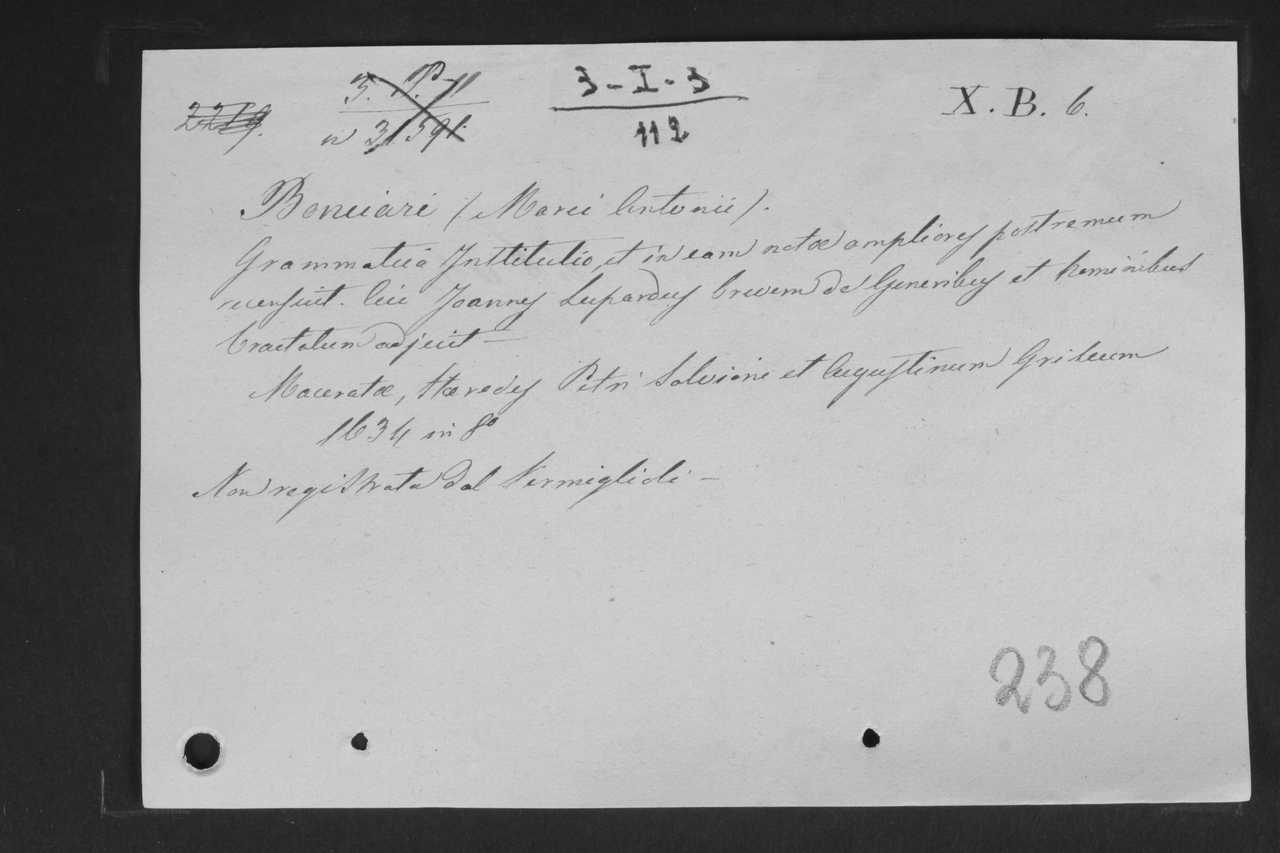 3-I-3
112
X. B. 6.
Bonciari (Marci Antonii).
Grammatica Institutio, et in eam notæ ampliores postremum
recensuit. Cui Joannes Lepardus brevem de Generibus et hominibus
tractatum adjecit—
Maceratæ, Hæredes Petri Salvioni et Augustinum Griseum
1634 in 8º
Non registrata dal Vermiglioli—
238